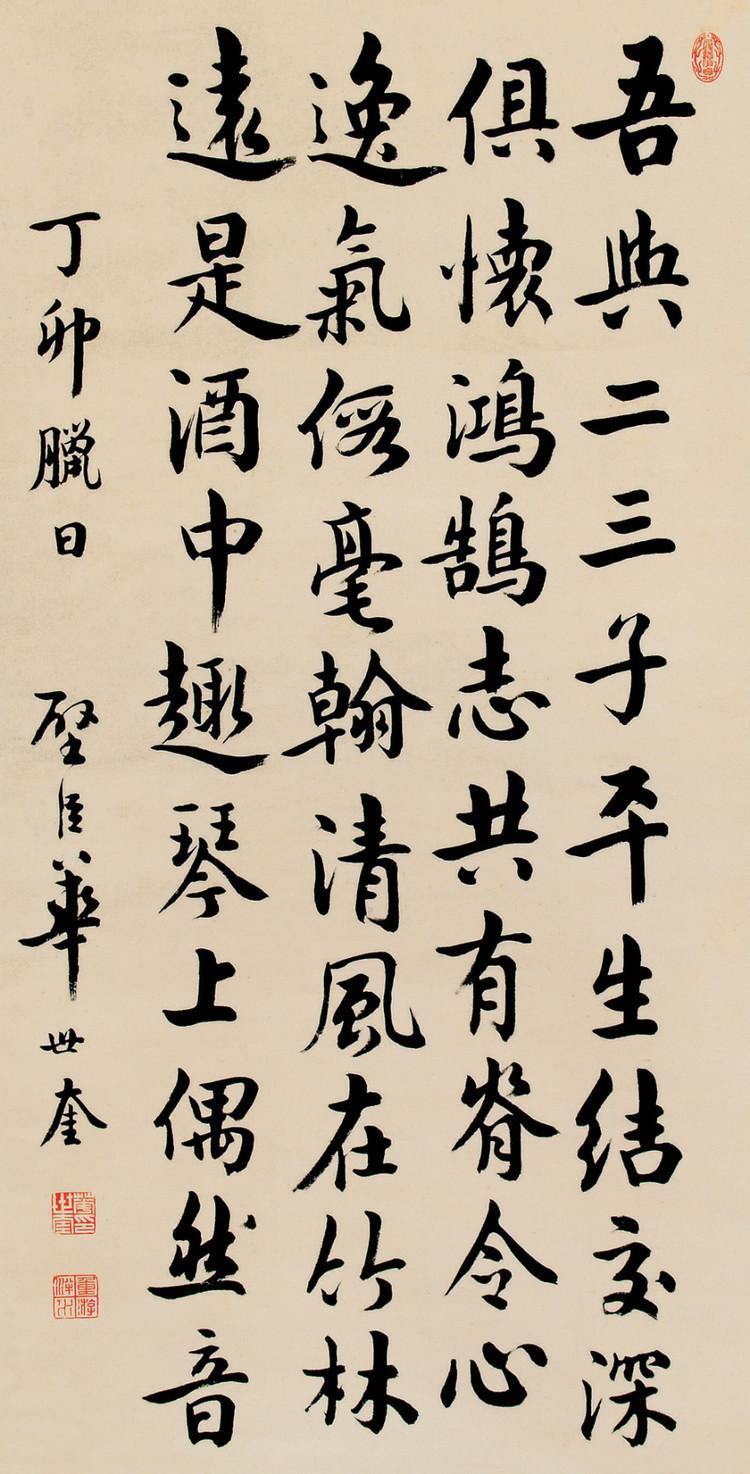 吾與二三子平生結交深
俱懷鴻鵠志共有脊令心
逸氣假毫翰清風在竹林
遠是酒中趣琴上偶然音
丁卯臘日 璧臣華世奎
華印世奎
重游泮水